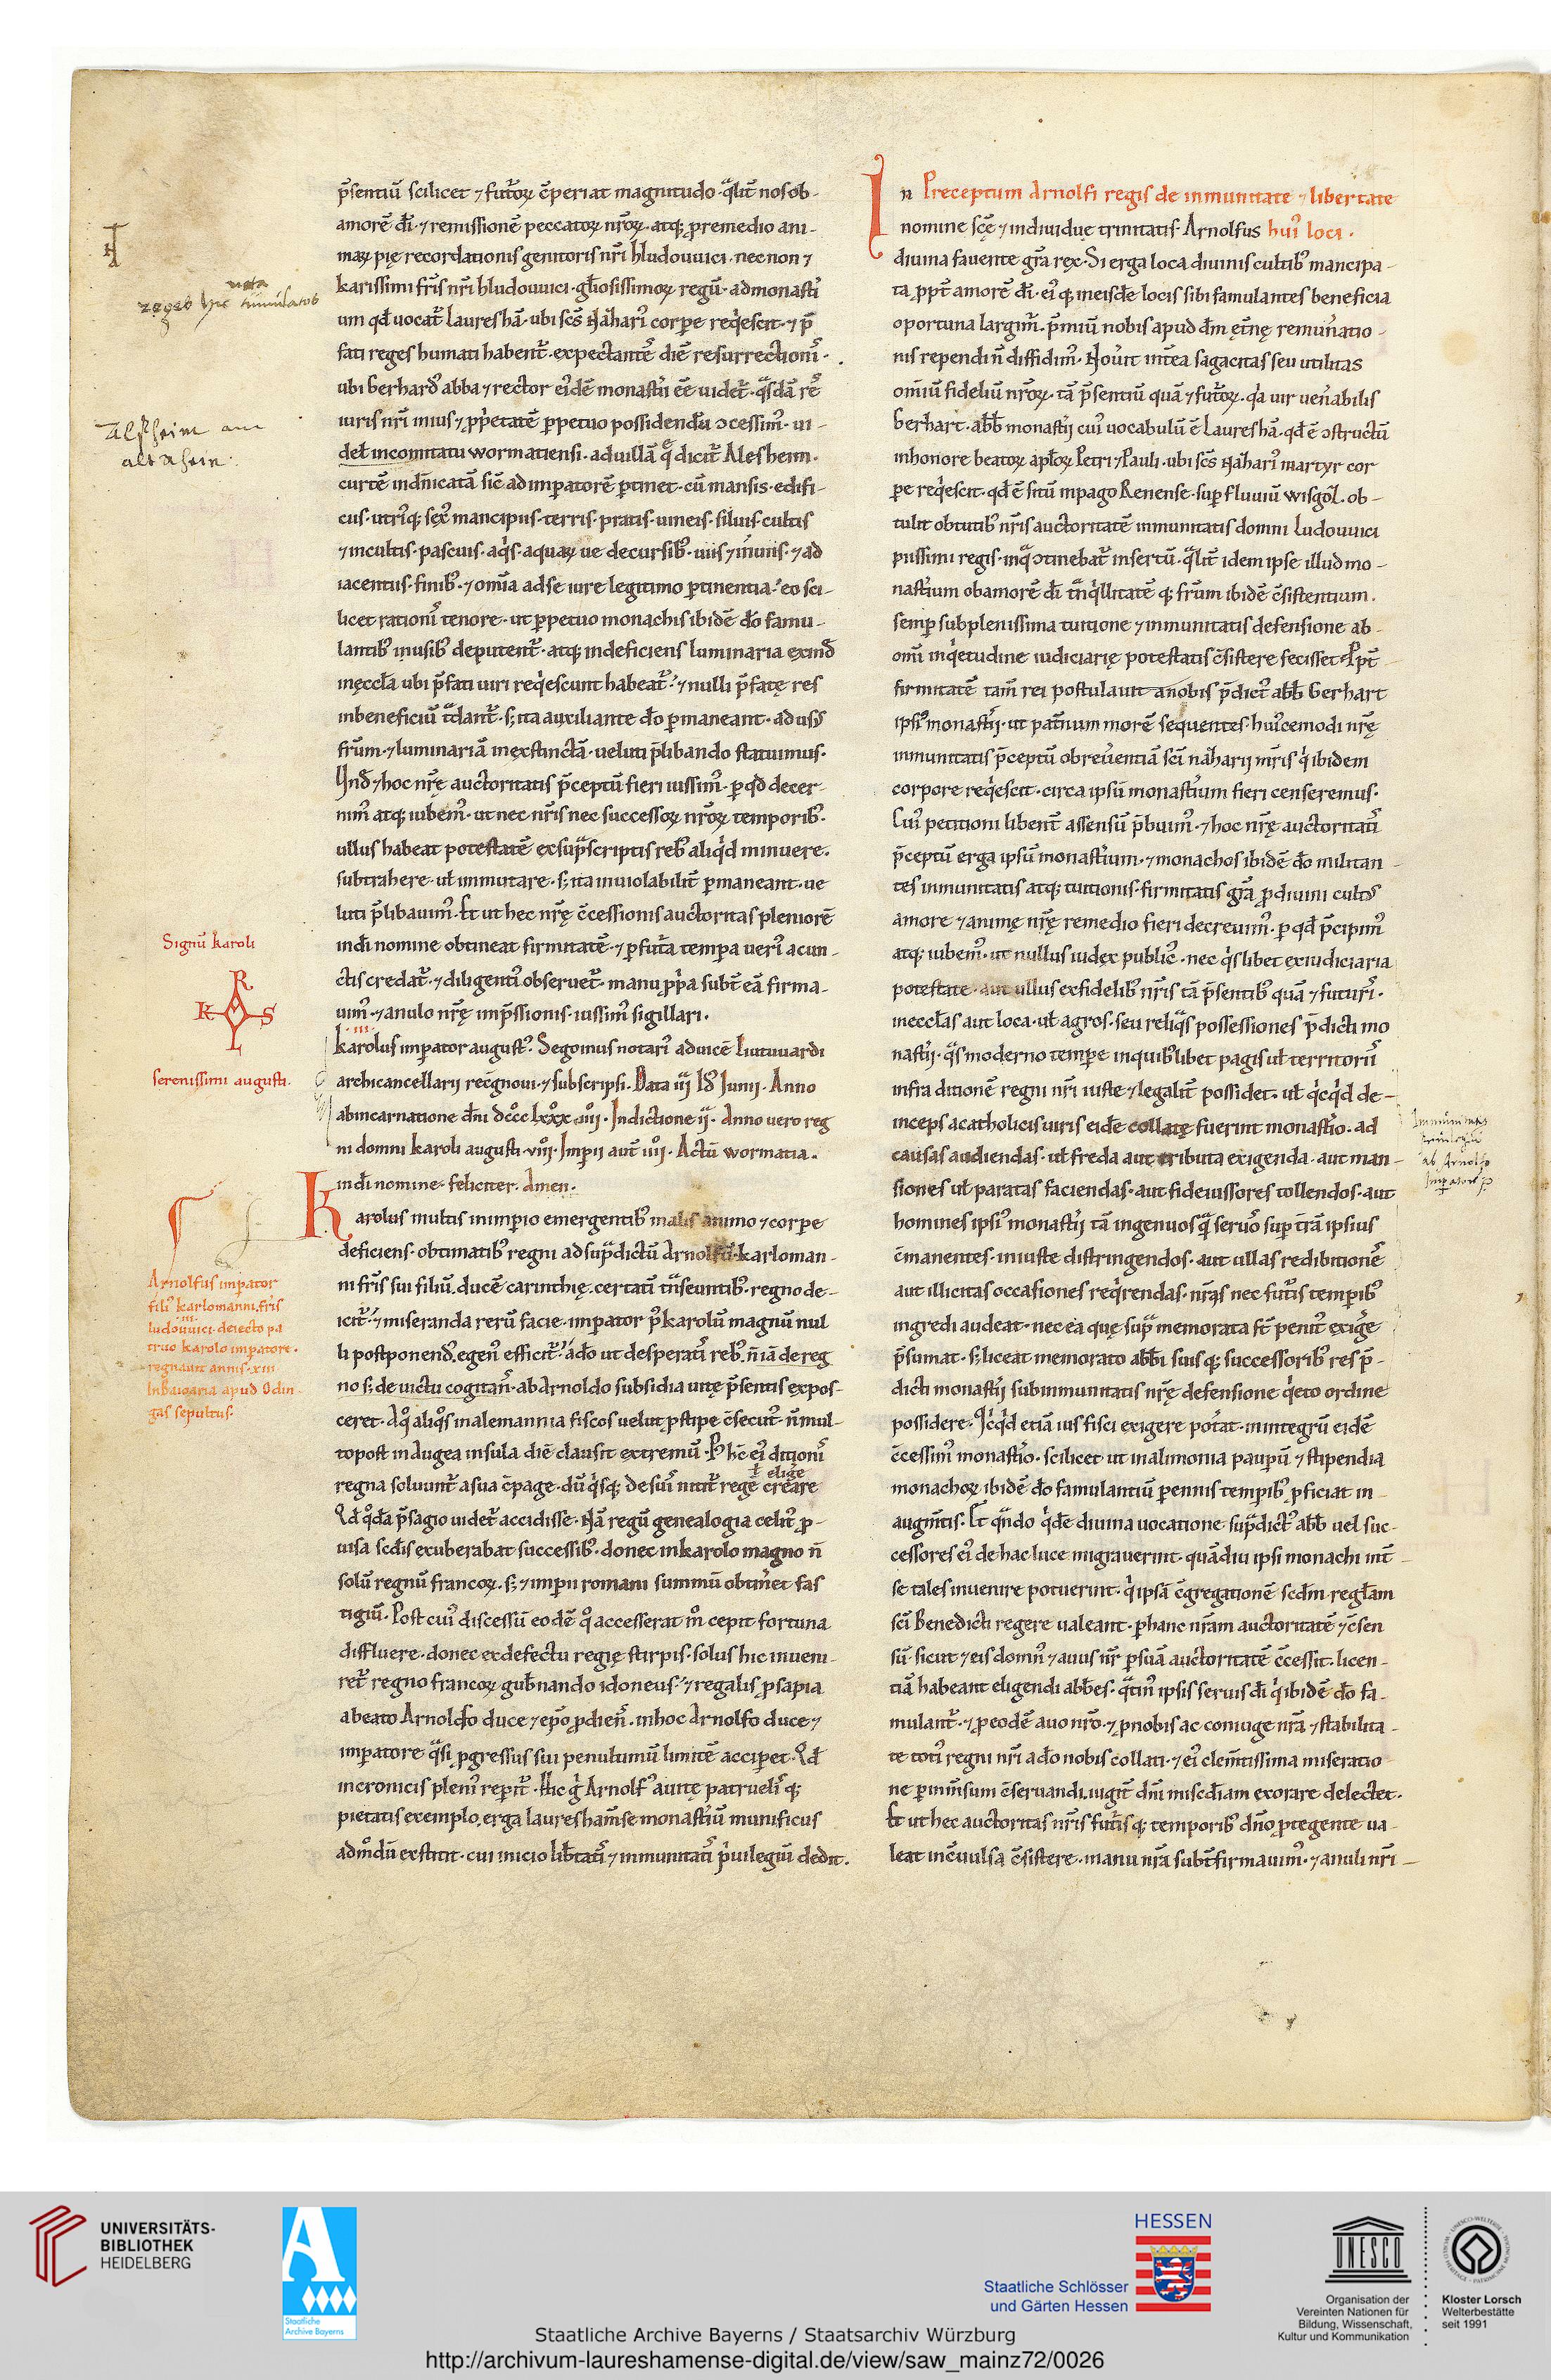 p̄sentiū scilicet ⁊ futur̄oꝝ c̄periat magnitudo · q̄lit̄ nos ob-
amorē dī · ⁊ remissionē peccatoꝝ nr̄oꝝ · atq; ꝓ remedio ani-
maꝝ pię recordationis genitoris nr̄i hludouuici · nec non ⁊
karissimi fr̄is nr̄i hludouuici · gl̄iosissimoꝝ regū · ad monasti
um qd̄ uocat̄ Laureshā · ubi sc̄s Naharī corꝑe reqͥescit · ⁊ p̄
fati reges humati habent̄ · expectantes diē resurrectionī ·
ubi Gerhard᷒ abba ⁊ rector ei᷒dē monast̄ii eē uidet̄ · qᷓsdā rē
iuris nr̄i in ius ⁊ ꝓpͥetatē ꝑpetuo possidendā ↄcessim᷒ · ui-
del̄ in comitatu wormatiensi · ad uillā qᷓ dicit̄ Alesheim ·
curtē indn̄icatā sic̄ ad imꝑatorē ꝑtinet · cū mansis · edifi-
ciis · utriq; sex᷒ mancipiis · terris · pratis · uineis · siluis · cultis
⁊ incultis · pascuis · aqͥs · aquaꝝ ue decursib᷒ · uiis ⁊ inuiis · ⁊ ad
iacentiis · finib᷒ · ⁊ om̄ia ad se iure legitimo ꝑtinentia · eo sci-
licet rationī tenore · ut ꝑpetuo monachis ibidē dō famu-
lantib᷒ in usib᷒ deputent̄ · atq; indeficiens luminaria exind̄
in ęccl̄a ubi p̄fati uiri reqͥescunt habeat̄ · ⁊ nulli p̄fatę res
in beneficiū tᷓdant̄ · s; ita auxiliante dō ꝑmaneant · ad us᷒
fr̄um · ⁊ luminariā inextinctā · ueluti p̄libando statuimus ·
Vnd̄ ⁊ hoc nr̄ę auctoritatis p̄ceptū fieri iussim᷒ · ꝑ qd̄ decer-
nim᷒ atq; iubem᷒ · ut nec nr̄is nec successoꝝ nr̄oꝝ temporib᷒ ·
ullus habeat potestatē ex supᷓscriptis reb᷒ aliqͥd minuere ·
subtrahere · ul̄ inmutare · s; ita inuiolabilit̄ ꝑmaneant · ue
luti p̄libauim᷒ · Et ut hec nr̄ę c̄cessionis auctoritas pleniorē
in dī nomine obtineat firmitatē · ⁊ ꝑ futur̄a temꝑa ueri᷒ a cun-
ctis credat̄ · ⁊ diligenti᷒ obseruet̄ · manu ꝓpͥa subt̄ eā firma-
uim᷒ · ⁊ anulo nr̄ę imp̄ssionis · iussim᷒ sigillari ·
·iii·
karolus imꝑator august᷒ · Segoinus notari᷒ aduicē Liutuuardi
archicancellarij recḡnoui · ⁊ subscripsi · Data iij id᷒ Junij · Anno
ab incarnatione dn̄i dccc lxxx iiij · Indictione ij · Anno uero reg
ni domni karoli augusti · viij · Imꝑii aut̄ iiij · Actū wormatia ·
in dī nomine · feliciter · Amen ·
Karolus multis in imꝑio emergentib᷒ malis animo ⁊ corꝑe
deficiens · obtimatib᷒ regni ad supᷓdictū Arnolfū · karloman-
ni fr̄is sui filiū · ducē carinthię · certatī tᷓnseuntib᷒ · regno de-
icit̄ · ⁊ miseranda rerū facie · imꝑator p᷒ karolū magnū nul
li postponend᷒ · egen᷒ efficit̄ · adō ut desperatī reb᷒ · n̄ iā de reg
no s; de uictu cogitan᷒ · ab Arnoldo subsidia uitę p̄sentis expos-
ceret · A qͦ aliqͦs in alemannia fiscos uelut ꝓ stipe c̄secut᷒ · n̄ mul-
to post in Augea insula diē clausit extremū · P᷒ hc̄ ei᷒ ditionī
regna soluunt̄ a sua c̄page · dū qͥsq; de suī nitit̄ regē creare
ł elige̕
Qd̄ qͦdā p̄sagio uidet̄ accidisse · Nā regū genealogia celit᷒ ꝓ-
uisa sc̄dis exuberabat successib᷒ · donec in karolo magno n̄
solū regnū francoꝝ · s; ⁊ imꝑii romani summū obtineret fas
tigiū · Post cui᷒ discessū eodē qͦ accesserat mͦ cepit fortuna
diffluere · donec ex defectu regię stirpis · solus hic inueni-
ret̄ regno francoꝝ gub̄nando idoneus · ⁊ regalis ꝓsapia
a beato Arnoldo duce ⁊ ep̄o ꝓdien᷒ · in hoc Arnolfo duce ⁊
imꝑatore qᷓsi ꝓgressus sui penultimū limitē acciꝑet · Qd̄
in cronicis pleni᷒ reꝑit̄ · Hic gͥ Arnolf᷒ auitę patrueli᷒ q;
pietatis exemplo, erga laureshamēse monast̄iū munificus
admͦdū exstitit · cui inicio lib̄tatī ⁊ inmunitatī pͥuilegiū dedit ·
nota
reges hic tumulatos
Alsheim am
alt Rhein ·
Signū karoli
K R S L
serenissimi augusti ·
Arnolfus imꝑator
fili᷒ karlomanni, fr̄is
ludouuici · deiecto pa
truo karolo imꝑatore ·
·iii·
regnauit annis · xiii
In baioaria apud Odin-
gas sepultus ·
Preceptum Arnolfi regis de inmunitate ⁊ libertate
hui᷒ loci ·
In nomine sc̄ę ⁊ indiuiduę trinitatis · Arnolfus
diuina fauente gr̄a rex · Si erga loca diuinis cultib᷒ mancipa-
ta ꝓpt̄ amorē dī · ei᷒q; in eisdē locis sibi famulantes beneficia
oportuna largim᷒ · p̄miū nobis apud dm̄ et̄nę remun̄atio-
nis rependi n̄ diffidim᷒ · Nou̕it int̄ea sagacitas seu utilitas
om̄iū fideliū nr̄oꝝ · tā p̄sentiū quā ⁊ futur̄oꝝ · qͥa uir uen̄abilis
Gerhart · abb̄ monast̄ij cui᷒ uocabulū ē Laureshā · qd̄ ē ↄstructū
in honore beatoꝝ apl̄oꝝ Petri ⁊ Pauli · ubi sc̄s Naharī martyr cor
ꝑe reqͥescit · qd̄ ē sitū in pago Renense · suꝑ fluuiū wisgōz · ob-
tulit obtutib᷒ nr̄is auctoritatē inmunitatis domni Ludouuici
piissimi regis · in qᷓ ↄtinebat̄ insertū · qᷓlit̄ idem ipse illud mo-
nast̄ium ob amorē dī tᷓnqͥllitatē q; fr̄um ibidē c̄sistentium ·
semꝑ sub plenissima tuitione ⁊ inmunitatis defensione ab-
omī inqͥetudine iudiciarię potestatis c̄sistere fecisset · Ꝓpt̄
firmitatē tam̄ rei postulauit a nobis p̄dict᷒ abb̄ Gerhart
ipsi᷒ monast̄ij · ut pat̄num morē sequentes · hui᷒cemodi nr̄ę
inmunitatis p̄ceptū ob reu̕entiā sc̄i nāharij mr̄is qͥ ibidem
corpore reqͥescit · circa ipsū monast̄ium fieri censeremus ·
Cui᷒ petitioni libent̄ assensū p̄buim᷒ · ⁊ hoc nr̄ę auctoritatī
p̄ceptū erga ipsū monast̄ium · ⁊ monachos ibidē dō militan-
tes inmunitatis atq; tuitionis · firmitatis gr̄a ꝓ diuini cult᷒
amore ⁊ animę nr̄ę remedio fieri decreuim᷒ · ꝑ qd̄ p̄cipim᷒
atq; iubem᷒ · ut nullus iudex public᷒ · nec qͥslibet ex iudiciaria
potestate · aut ullus ex fidelib᷒ nr̄is tā p̄sentib᷒ quā ⁊ futurī ·
in eccl̄as aut loca · ul̄ agros · seu reliqᷓs possessiones p̄dicti mo
nast̄ij · qᷓs moderno temꝑe in quib᷒libet pagis ul̄ territorī
infra ditionē regni nr̄i iuste ⁊ legalit̄ possidet · ul̄ qͥcqͥd de-
inceps a catholicis uiris eidē collatę fuerint monast̄io · ad
causas audiendas · ul̄ freda aut tributa exigenda · aut man-
siones ul̄ paratas faciendas · aut fideiussores tollendos · aut
homines ipsi᷒ monast̄ij tā ingenuos qᷓ seruos suꝑ tr̄ā ipsius
c̄manentes · iniuste distringendos · aut ullas redibitionē
aut illicitas occasiones reqͥrendas · nr̄is nec futur̄is temꝑib᷒
ingredi audeat · nec ea quę supᷓ memorata st̄ penit᷒ exige̕
p̄sumat · s; liceat memorato abb̄i suis q; successorib᷒ res p̄-
dicti monast̄ij sub inmunitatis nr̄ę defensione qͥeto ordine
possidere · Qͥcqͥd etiā ius fisci exigere pot̕at · in integrū eidē
c̄cessim᷒ monast̄io · scilicet ut in alimonia pauꝑū ⁊ stipendia
monachoꝝ ibidē dō famulantiū ꝑennis temꝑib᷒ ꝓficiat in
augm̄tis · Et qᷓndo qͥdē diuina uocatione supᷓdict᷒ abb̄ uel suc-
cessores ei᷒ de hac luce migrauerint · quādiu ipsi monachi int̄
se tales inuenire potuerint · qͥ ipsā c̄gregationē sc̄dm regl̄am
sc̄i Benedicti regere ualeant · ꝑ hanc nr̄am auctoritatē ⁊ c̄sen
sū · sicut ⁊ eis domn᷒ ⁊ auus nr̄ ꝑ suā auctoritatē c̄cessit · licen-
tiā habeant eligendi abb̄es · qᷓtin᷒ ipsis seruis dī qͥ ibidē dō fa-
mulant̄ · ⁊ ꝓ eodē auo nr̄o · ⁊ ꝓ nobis ac coniuge nr̄a ⁊ stabilita-
te toti᷒ regni nr̄i a dō nobis collati · ⁊ ei᷒ clem̄tissima miseratio
ne ꝑ inm̄sum c̄seruandi, iugit̄ dn̄i misc̄diam exorare delectet ·
Et ut hec auctoritas nr̄is futur̄is q; temporib᷒ dn̄o ꝓtegente ua-
leat inc̄uulsa c̄sistere · manu nr̄a subt̄ firmauim᷒ · ⁊ anuli nr̄i
Immunitas
ab Arnolfo
Imperatore
UNIVERSITÄTS-
BIBLIOTHEK
HEIDELBERG
Staatliche
Archive Bayerns
HESSEN
Staatliche Schlösser
und Gärten Hessen
UNESCO
Organisation der
Vereinten Nationen für
Bildung, Wissenschaft,
Kultur und Kommunikation
Kloster Lorsch
Welterbestätte
seit 1991
Staatliche Archive Bayerns / Staatsarchiv Würzburg
http://archivum-laureshamense-digital.de/view/saw_mainz72/0026